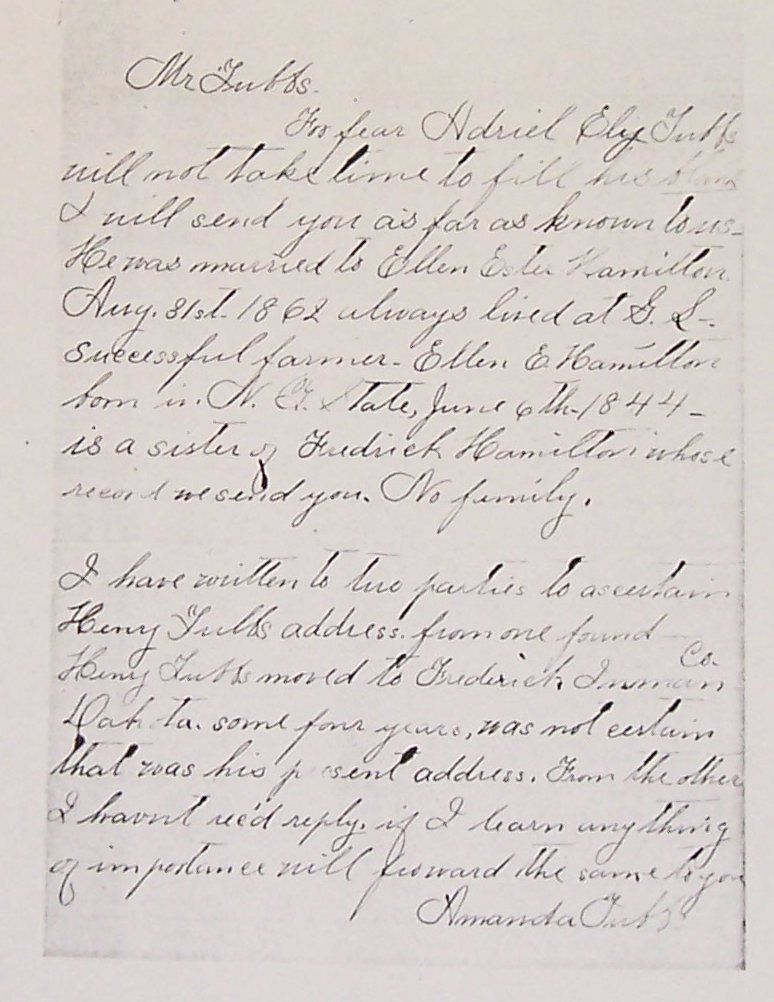 Mr Tubbs.
For fear Adriel Ely Tubbs
will not take time to fill his blank
I will send you as far as known to us-
He was married to Ellen Ester Hamilton
Aug. 31st. 1862 always lived at G. L-.
Successful farmer- Ellen E Hamilton
born in. N. Y. State, June 6th-1844-
is a sister of Fredrick Hamilton whose
record we send you. No family.
I have written to two parties to ascertain
Henry Tubbs address. from one found
Henry Tubbs moved to Frederick Inman Co.
Dakota. some four years, was not certain
that was his present address. From the other
I havnt rec'd reply. if I learn any thing
of importance will forward the same to you
Amanda Tubbs